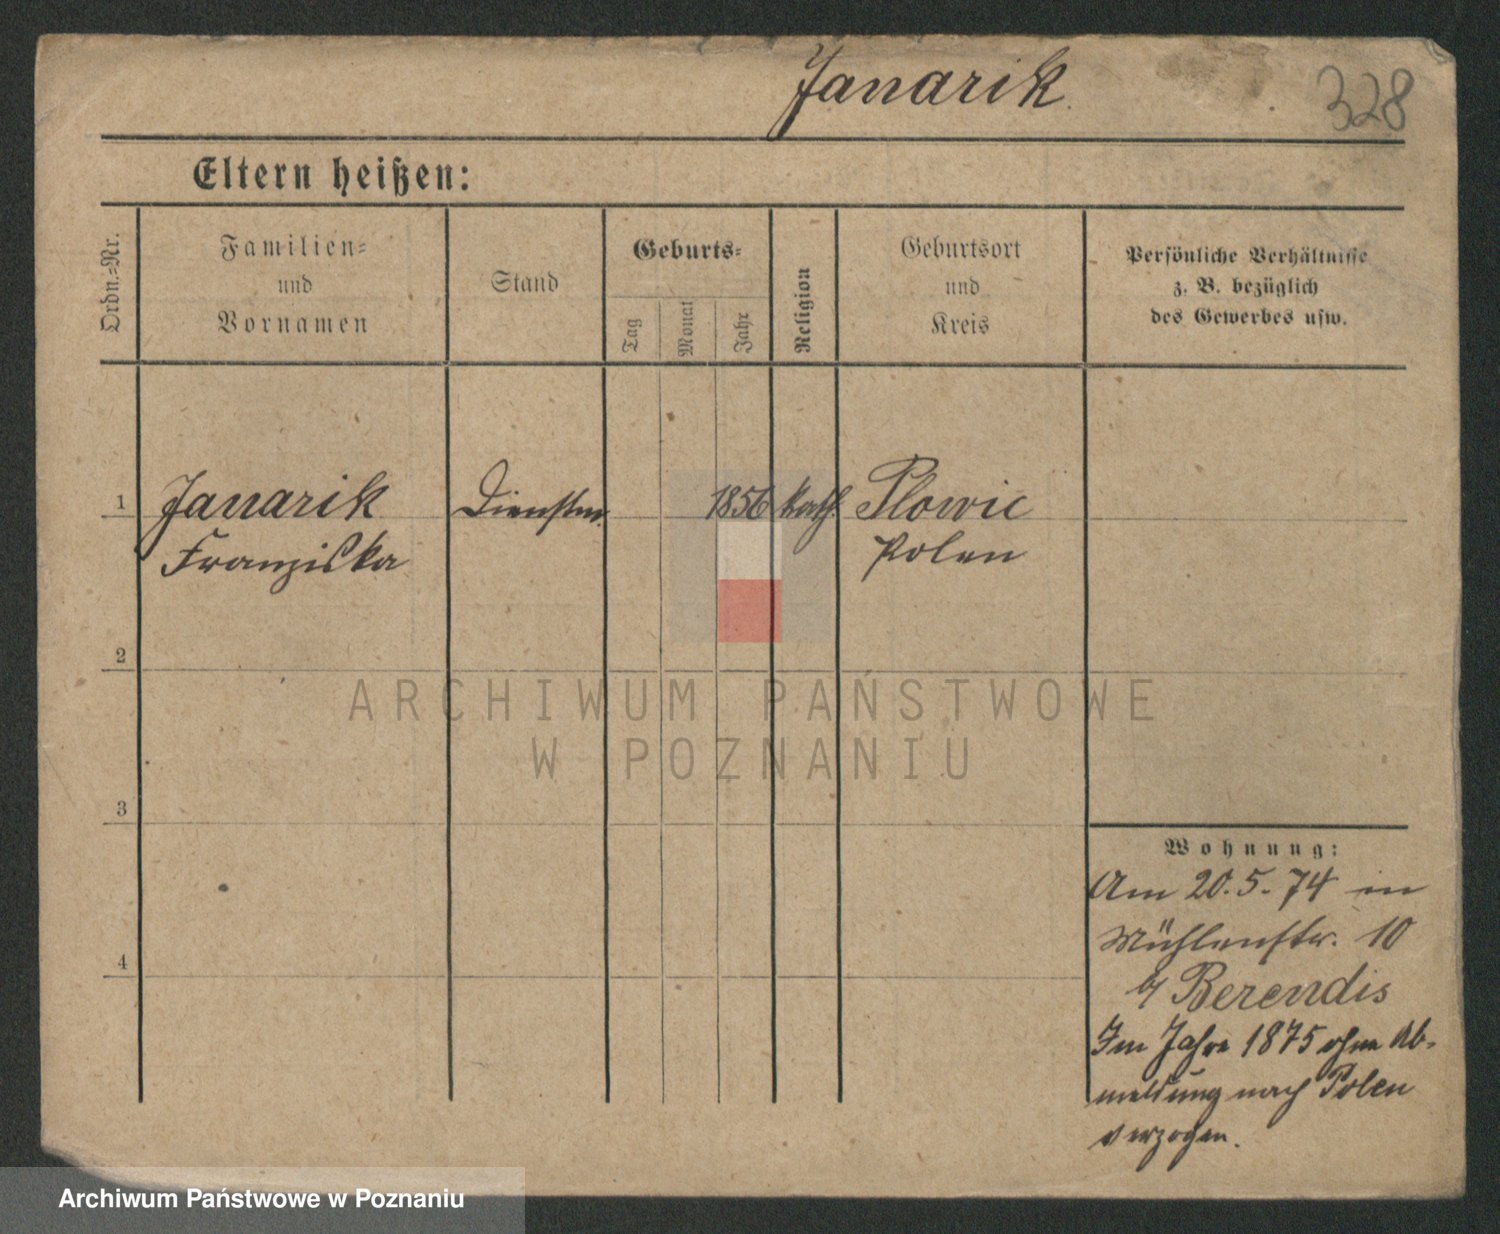 Janarik
328
Eltern heißen:
Ordn.=Nr.
Familien=
und
Vornamen
Stand
Geburts=
Tag
Monat
Jahr
Religion
Geburtsort
und
Kreis
Persönliche Verhältnisse
z. B. bezüglich
des Gewerbes usw.
1
Janarik
Franziska
Dienstm.
1856
kath.
Plowic
Polen
2
ARCHIWUM PAŃSTWOWE
W POZNANIU
3
Wohnung:
Am 20.5.74 in
Mühlenstr. 10
b/ Berendis
4
Im Jahre 1875 ohne Ab-
meldung nach Polen
verzogen.
Archiwum Państwowe w Poznaniu